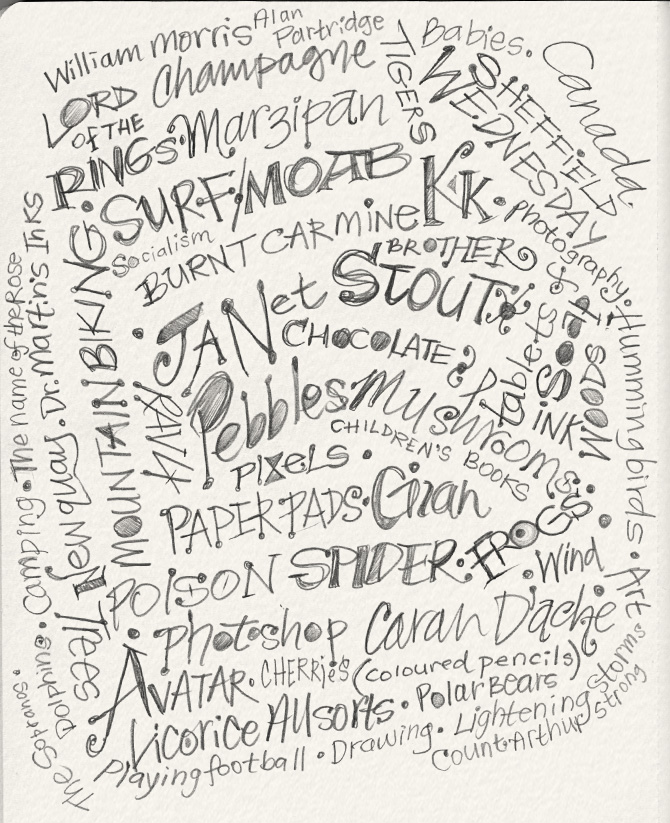 William Morris
Alan
Partridge
Babies.
Canada.
LORD
OF THE
RINGS.
Champagne
TIGERS
SHEFFIELD
WEDNESDAY
Marzipan
SURF/MOAB
KK.
Photography.
Socialism
BURNT CARMINE
BROTHER
JANet
STOUT
CHOCOLATE
tablets &
INK
MOODS
Humming birds.
Pebbles
Mushrooms
CHILDREN'S BOOKS
PIXELS.
MOUNTAIN BIKING
Dr. Martin's Inks
The name of the Rose
Newquay.
Camping.
PAPER PADS.
Gran
POISON SPIDER.
FROGS
Wind
Art
Photoshop
Caran D'ache
(coloured pencils)
AVATAR.
CHERRIES
Licorice Allsorts.
Polar Bears
Lightening storms
Playing football.
Drawing.
Count Arthur strong
Dolphins.
The Sopranos.